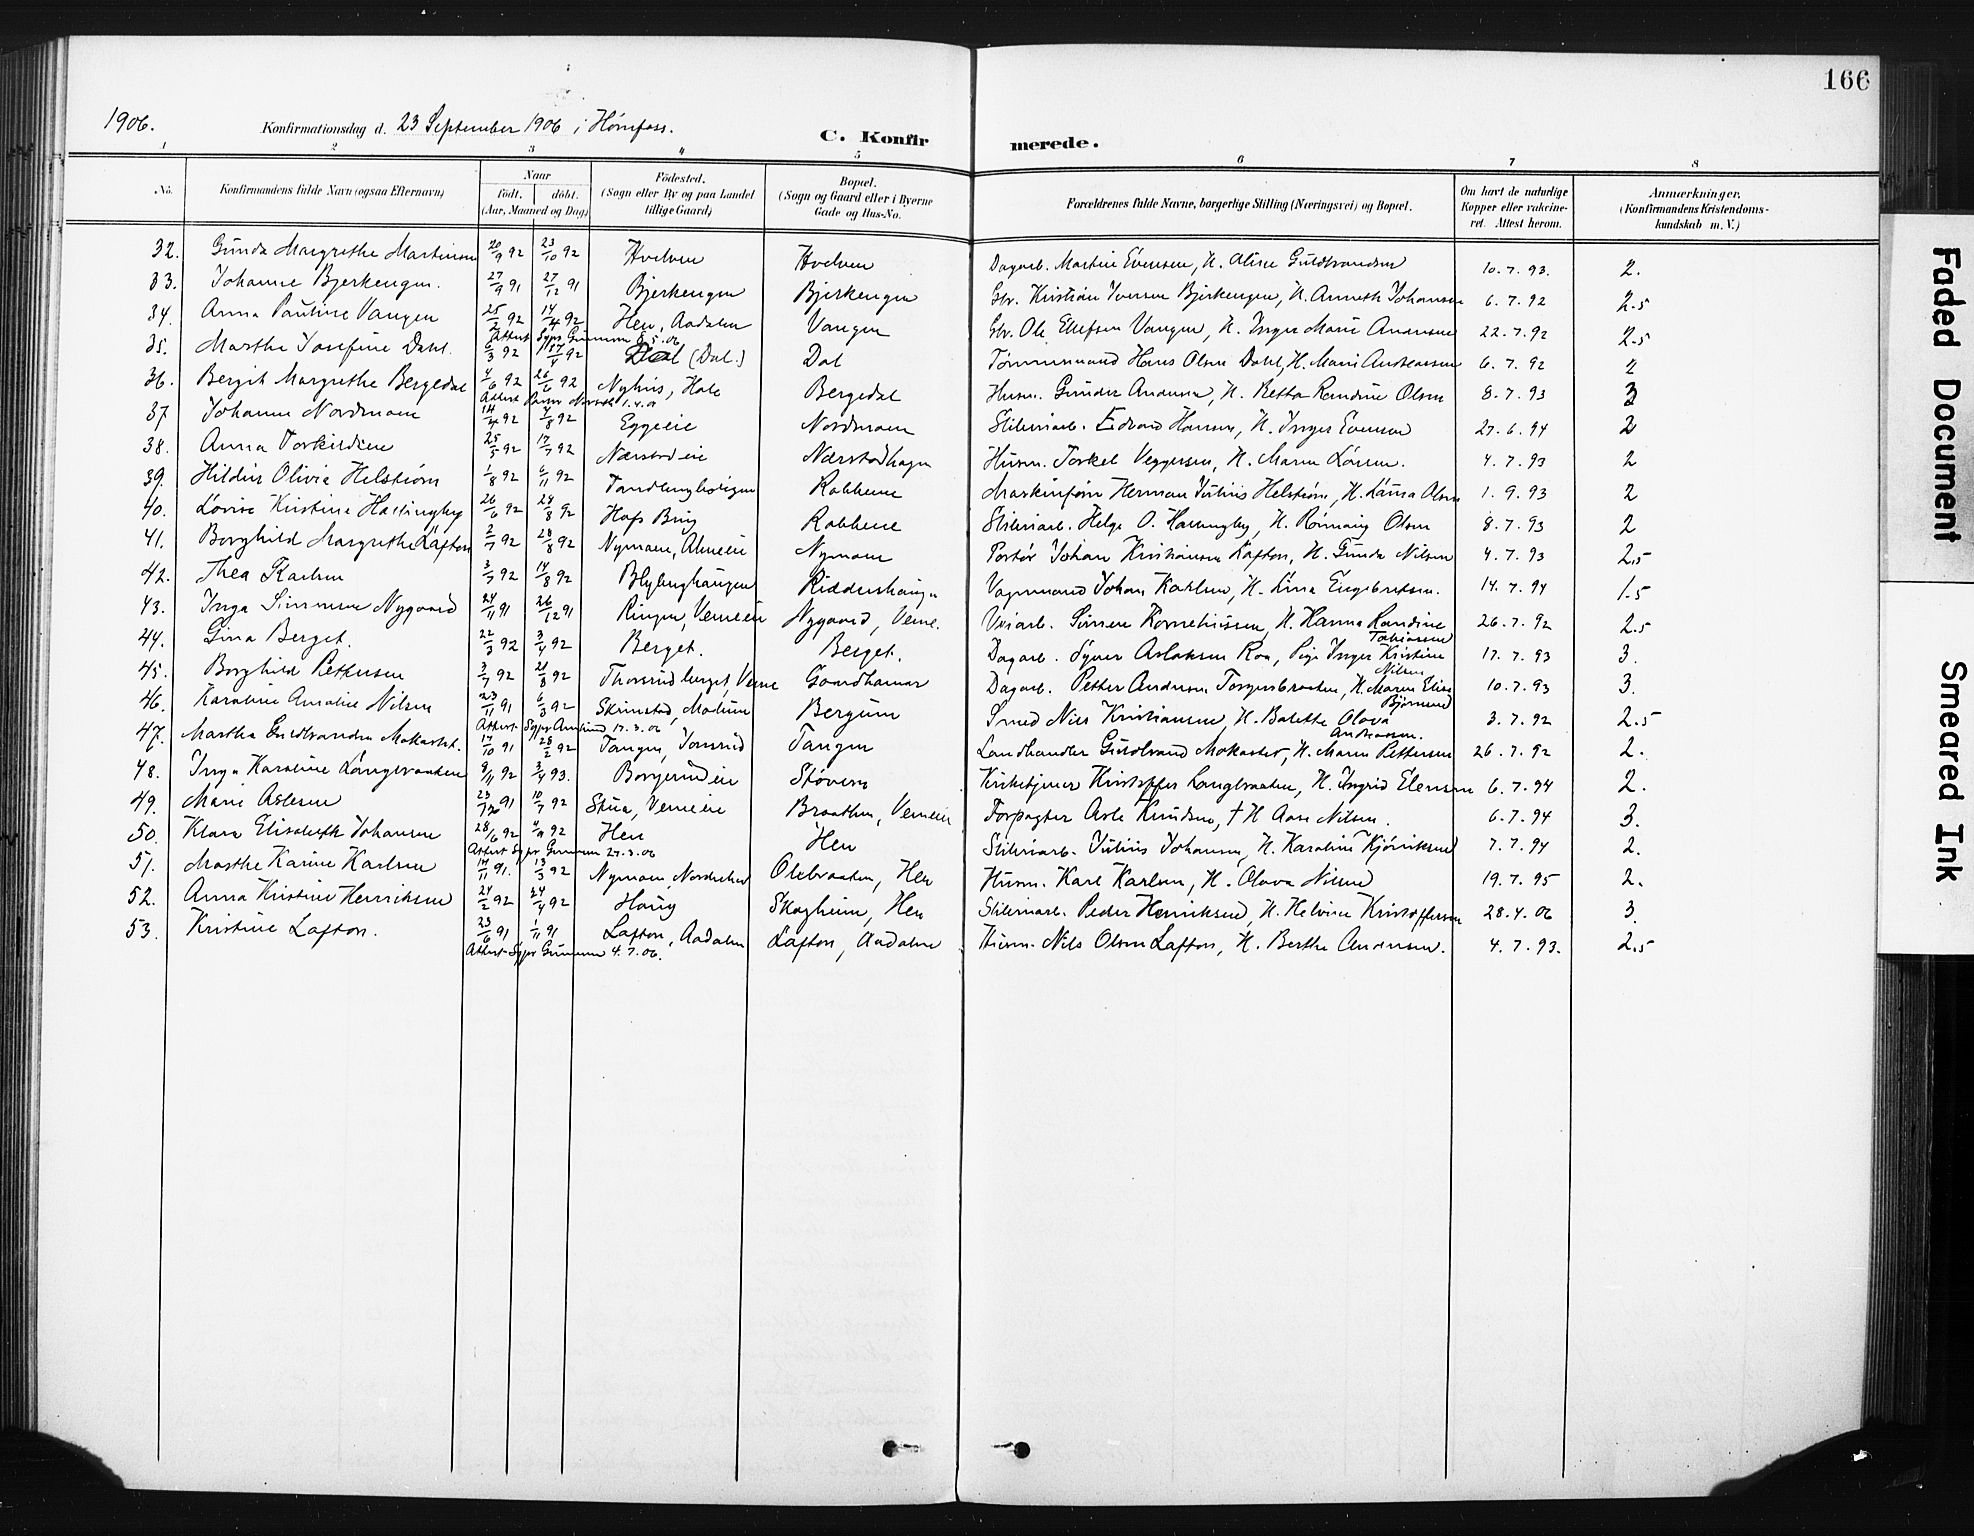 166
1906. Konfirmationsdag d. 23 September 1906 i Hønefoss. C. Konfirmerede.
1 2 3 4 5 6 7 8
No. Konfirmandens fulde Navn (ogsaa Efternavn) Naar født. døbt. (Aar, Maaned og Dag) Fødested. (Sogn eller By og paa Landet tillige Gaard) Bopæl. (Sogn og Gaard eller i Byerne Gade og Hus-No. Forældrenes fulde Navne, borgerlige Stilling (Næringsvei) og Bopæl. Om havt de naturlige Kopper eller vaccineret. Attest herom. Anmærkninger. (Konfirmandens Kristendomskundskab m. V.)
32. Gunda Margrethe Martinsen 20/9 92 23/10 92 Hvelven Hvelven Dagarb. Martin Evensen, H. Aline Guldbrandsen 10.7.93. 2.
33. Johanne Bjerkengen. 27/9 91 27/12 91 Bjerkengen Bjerkengen Gbr. Kristian Iversen Bjerkengen, H. Anneth Johansen 6.7.92 2.5
34. Anna Pauline Vangen 25/2 92 14/4 92 Hen, Aadalen Vangen Gbr. Ole Ellefsen Vangen, H. Inger Marie Andersen 22.7.92 2.5
Attest Sgpr Gunnerson 8.5.06
35. Marthe Josefine Dahl. 6/3 92 17/4 92 Dal (Dal.) Dal Tømmermand Hans Olsen Dahl, H. Marie Andreassen 6.7.92 2
36. Bergit Margrethe Bergedal 4/6 92 26/6 92 Nyhus, Hole Bergedal Husm. Gunder Andersen, H. Betta Randine Olsen 8.7.93 3
Attest 1.4.0
37 Johanne Nordmoen 14/4 92 7/8 92 Eggeeie Nordmoen Sliberiarb. Edvard Hansen, H. Inger Evensen 27.6.94 2
38. Anna Torkildsen 25/5 92 17/7 92 Nærstadeie Nærstadhagen Husm. Torkel Veggersen, H. Maren Larsen. 4.7.93 2
39. Hildur Olivia Helstrøm 1/8 92 6/11 92 Robbene Maskinførn Herman Julius Helstrøm, H. Laura Olsen 1.9.93 2
40. Lovise Kristine Hallingby 26/6 92 28/8 92 Hofs Brug Robbene Sliberiarb. Helge O. Hallingby, H. Rønnaug Olsen 8.7.93 2
41. Borghild Margrethe Lafton 2/7 92 28/8 92 Nymoen, Almeie Nymoen Portør Johan Kristiansen Lafton, H. Gunda Nilsen 4.7.93 2.5
42. Thea Karlsen 3/7 92 14/8 92 Blyberghaugen Riddershaugen Vognmand Johan Karlsen, H. Lina Engebretsen. 14.7.94 1.5
43. Inga Simensen Nygaard 24/11 91 26/12 91 Ringen, Vemeeie Nygaard, Veme. Veiarb. Simen Korneliussen, H. Hanna Randine Tobiassen 26.7.92 2.5
44. Gina Berget. 22/3 92 3/4 92 Berget. Berget. Dagarb. Syver Aslaksen Roa, Pige Inger Kristine Nilsen 17.7.93 3.
45. Borghild Pettersen 3/7 92 21/8 92 Thorsrudberget, Veme Gaardhamar Dagarb. Petter Andersen Torgersbraaten, H. Maren Elise Bjørnsen 10.7.93 3.
46. Karoline Amalie Nilsen 23/11 91 6/3 92 Skinstad, Modum Bergum Smed Nils Kristiansen, H. Batette Olava Andreassen. 3.7.92 2.5
Attest. Sgpr Amlund 17.3.06
47. Martha Guldbrandsen Mokastet. 17/10 91 28/2 92 Tangen, Tangen Landhandler Guldbrand Mokastet, H. Maren Pettersen 26.7.92 2.
48. Inga Karoline Langbraaten 9/11 92 3/4 93. Borgerudeie Støveren Kirketjener Kristoffer Langbraaten, H. Ingrid Elensen 6.7.94 2.
49. Marie Aslesen 23/12 91 10/7 92 Stua, Vemeeie Braathen, Vemeeie Forpagter Asle Knudsen, † H Aase Nilsen. 6.7.94 3.
50. Klara Elisabeth Johansen 28/6 92 4/9 92 Hen Hen Sliberiarb. Julius Johansen, H. Karoline Kjøniksen 7.7.94 2.
Attest Sgpr Gunnerson 27.3.06
51. Marthe Karine Karlsen 14/11 91. 13/3 92 Nymoen, Olebraaten, Hen Husm. Karl Karlsen, H. Olava Nilsen 19.7.95 2.
52. Anna Kristine Henriksen 24/2 92 24/4 92 Haug Skogheim, Hen Sliberiarb. Peder Henriksen, H. Helvine Kristoffersen 28.4.06 3.
53. Kristine Lafton. 23/6 91 1/11 91 Lafton, Aadalen Lafton, Aadalen Husm. Nils Olsen Lafton, H. Berthe Andersen. 4.7.93. 2.5
Attest Sgpr Gunnerson 4.7.06.
Faded Document
Smeared Ink